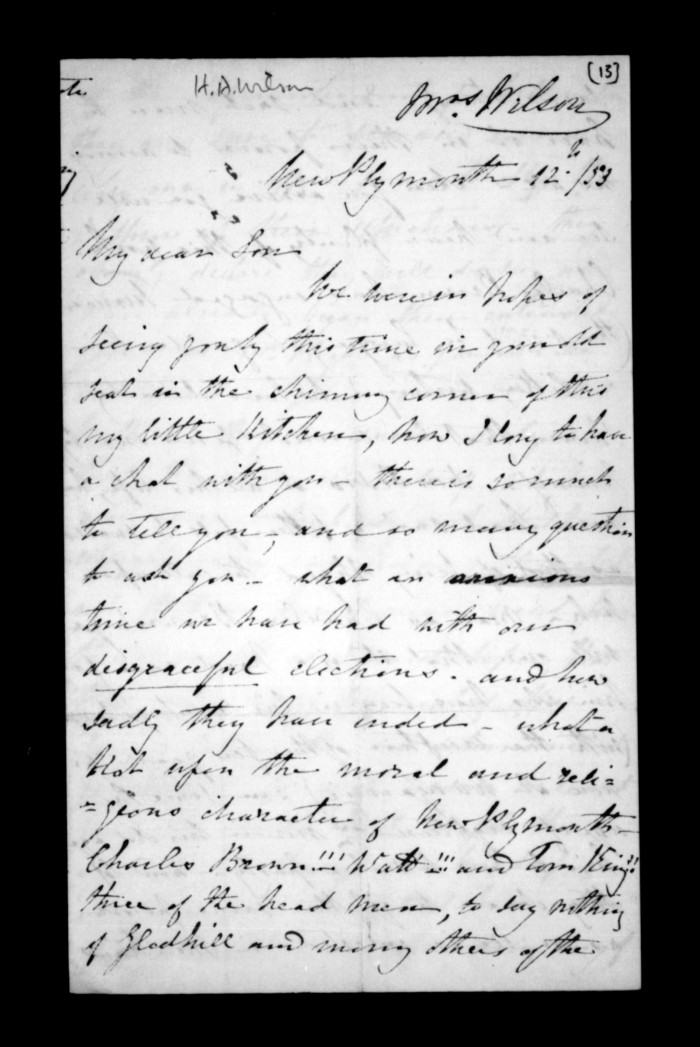 [13]
H. A. Wilson
Mrs Wilson
New Plymouth 12th /53
My dear Son
We were in hopes of
seeing you by this time in your old
seat in the chimney corner of this
my little Kitchen, how I long to have
a chat with you - there is so much
to tell you -, and so many question
to ask you - what an anxious
time we have had with our
disgraceful elections - and how
sadly they have ended - what a
blot upon the moral and reli=
=geous character of New Plymouth -
Charles Brown!!! Watt!!! and Tom King!!
three of the head men, to say nothing
of Gledhill and many others of the